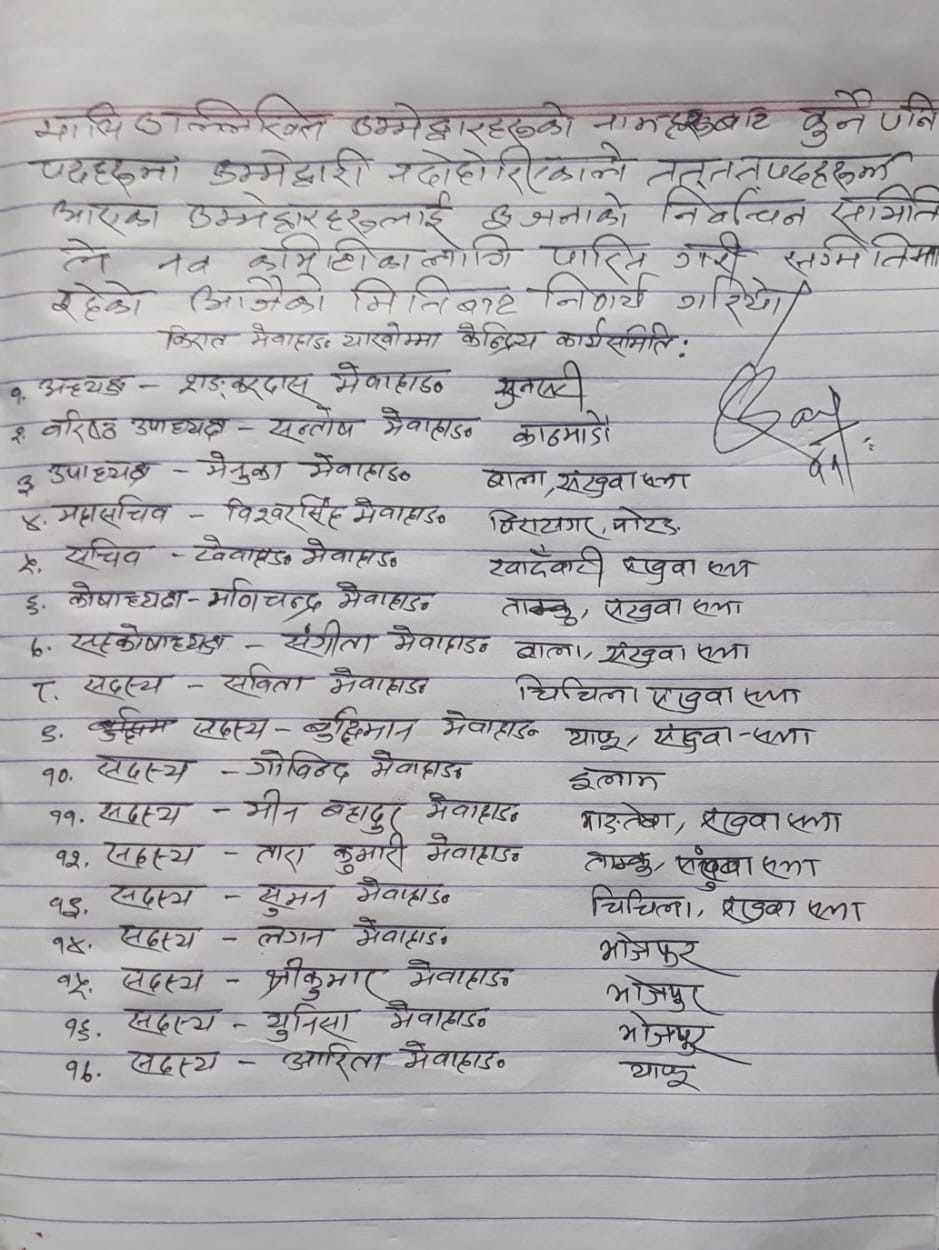 माथि उल्लेखित उम्मेद्वारहरुको नामहरुबाट कुनै पनि
पदहरुमा उम्मेद्वारी नदोहोरिएकाले तत् तत् पदहरुमा
आएका उम्मेद्वारहरुलाई ६ जनाको निर्वाचन समिति
ले नव कमिटीका लागि पारित गरी समितिमा
रहेको आजैको मितिबाट निर्णय गरियो।
किरात मेवाहाङ याखोम्मा केन्द्रिय कार्यसमिति:
१. अध्यक्ष - शङ्करदास मेवाहाङ सुनसरी
२. वरिष्ठ उपाध्यक्ष - सन्तोष मेवाहाङ काठमाडौ
३ उपाध्यक्ष - मेनुका मेवाहाङ बाला, संखुवा सभा
४. महासचिव - विश्वरसिंह मेवाहाङ
५. सचिव - मेवाहाङ संखुवा सभा
६. कोषाध्यक्ष - मणिचन्द्र मेवाहाङ ताम्कु, संखुवा सभा
७. सहकोषाध्यक्ष - संगीता मेवाहाङ बाला, संखुवा सभा
८. सदस्य - सविता मेवाहाङ चिचिला संखुवा सभा
९. सदस्य - बुद्धिमान मेवाहाङ याफू, संखुवा-सभा
१०. सदस्य - गोविन्द मेवाहाङ इलाम
११. सदस्य - मीन बहादुर मेवाहाङ संखुवा सभा
१२. सदस्य - तारा कुमारी मेवाहाङ ताम्कु, संखुवा सभा
१३. सदस्य - सुमन मेवाहाङ चिचिला, संखुवा सभा
१४. सदस्य - लगन मेवाहाङ भोजपुर
१५. सदस्य - श्रीकुमार मेवाहाङ भोजपुर
१६. सदस्य - युनिसा मेवाहाङ भोजपुर
१७. सदस्य - आरिता मेवाहाङ याफू